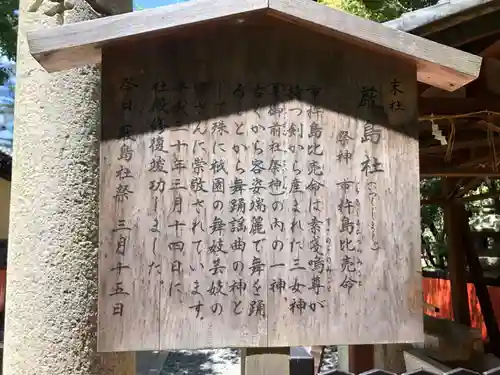 末社
厳島社（いつくしましゃ）
祭神　市杵島比売命
市杵島比売命は素戔嗚尊が
持つ剣から産まれた三女神
（美御前社祭神）の内の一神。
古くから容姿端麗で舞を踊
ることから舞踊謡曲の神と
して殊に祇園の舞妓芸妓の
皆さんに崇敬されています。
平成三十年三月十四日に
社殿修復竣功しました。
祭日　厳島社祭　三月十五日